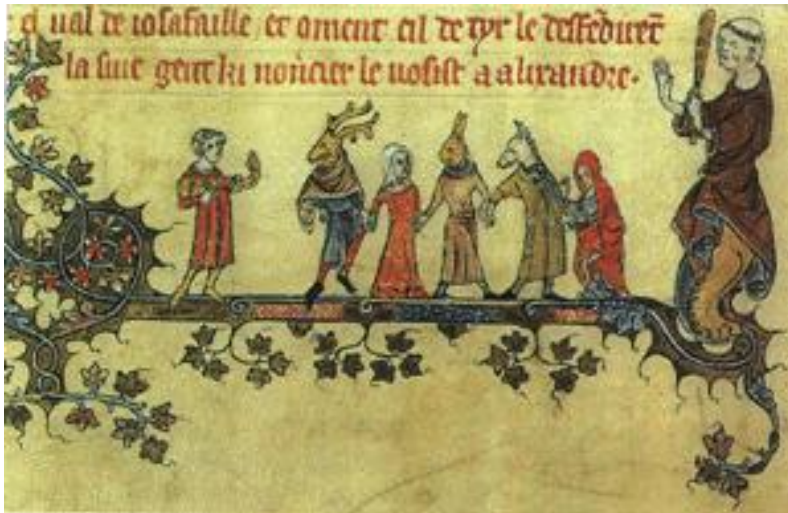 el ual de iosafaille et oment cil de tyr le deffēdirēt
la suie gent ki noncier le uosist a alixandre.